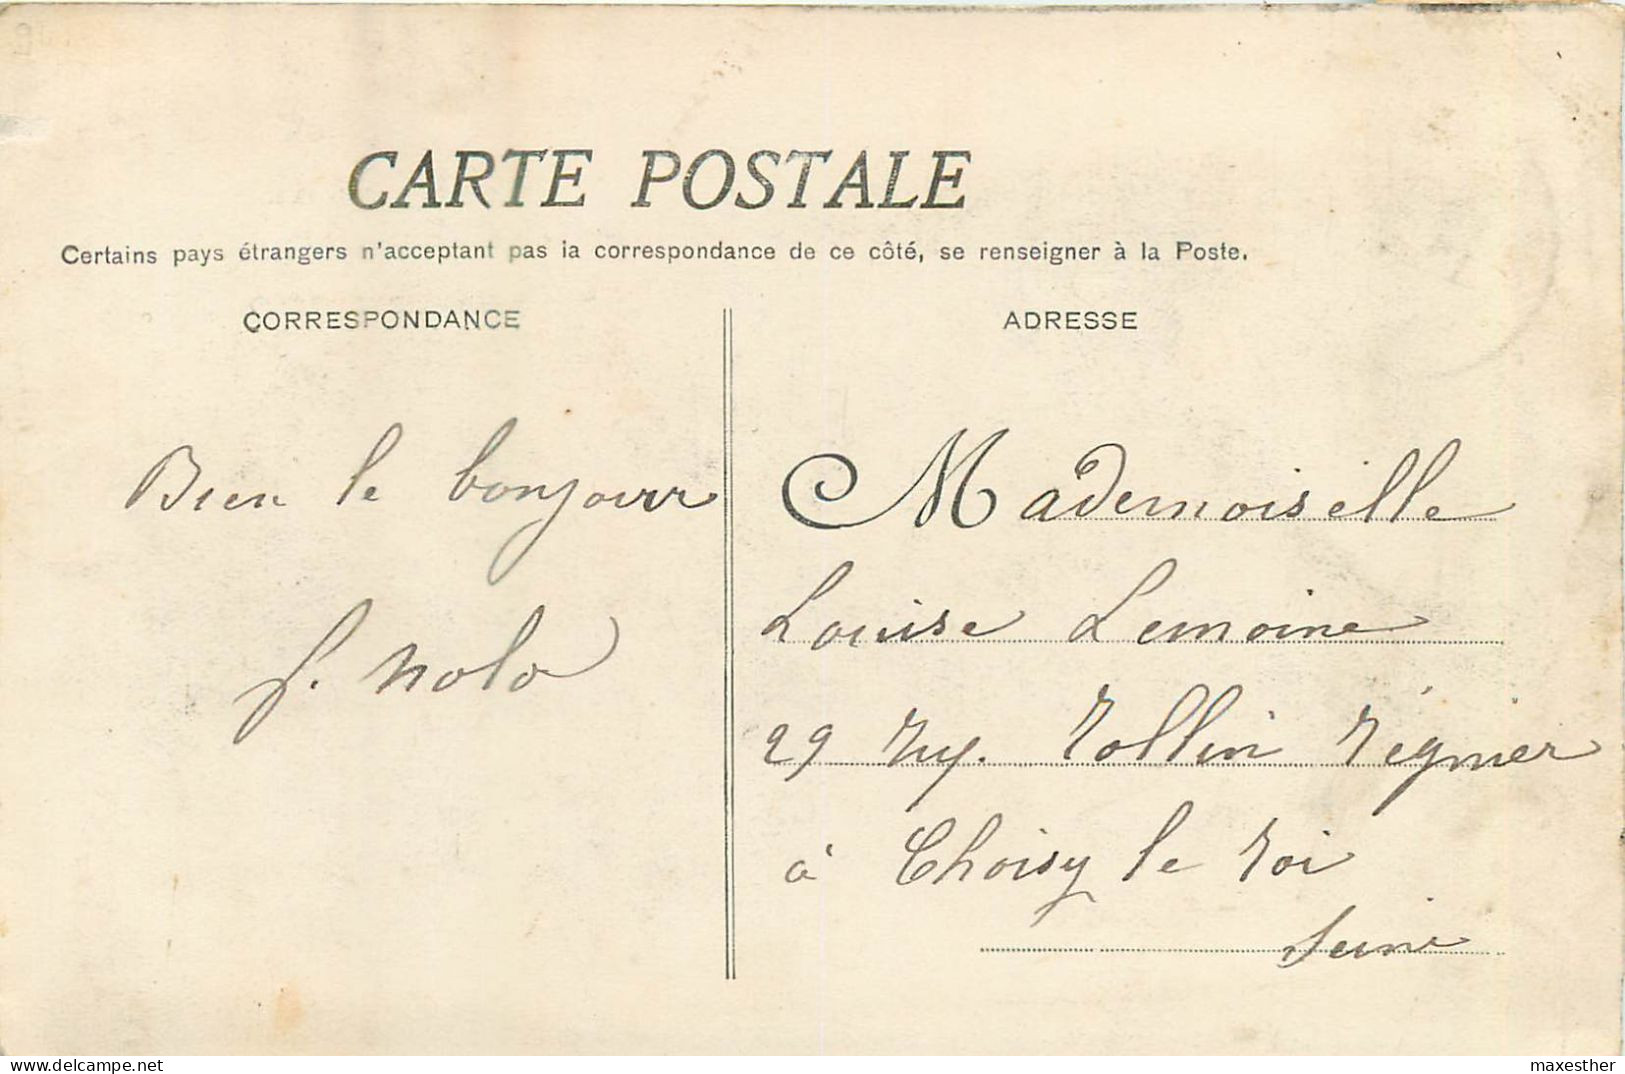 CARTE POSTALE
Certains pays étrangers n'acceptant pas la correspondance de ce côté, se renseigner à la Poste.
CORRESPONDANCE
ADRESSE
Bien le bonjour
f. Nolo
Mademoiselle
Louise Lemoine
29 rollin régnier
à Choisy le roi
Seine
delcampe.net
maxesther